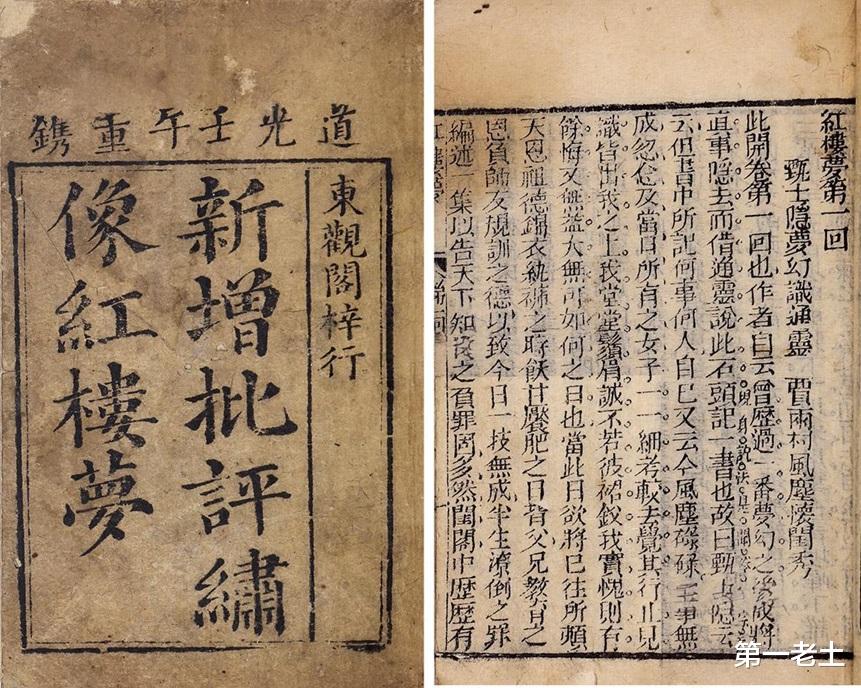 道光壬午重鐫
東觀閣梓行
新增批評繡
像紅樓夢
紅樓夢第一回
甄士隱夢幻識通靈　賈雨村風塵懷閨秀
此開卷第一回也作者自云曾歷過一番夢幻之後故將
眞事隱去而借通靈說此石頭記一書也故曰甄士隱云
現身說法是
云但書中所記何事何人自己又云今風塵碌碌一事無
成忽念及當日所有之女子一一細考較去覺其行止見
識皆出我之上我堂堂鬚眉誠不若彼裙釵我實愧則有
餘悔又無益大無可如何之日也當此日欲將已往所賴
天恩祖德錦衣紈袴之時飫甘饜肥之日背父兄教育之
恩負師友規訓之德以致今日一技無成半生潦倒之罪
編述一集以告天下知我之負罪固多然閨閣中歷歷有
第一老士